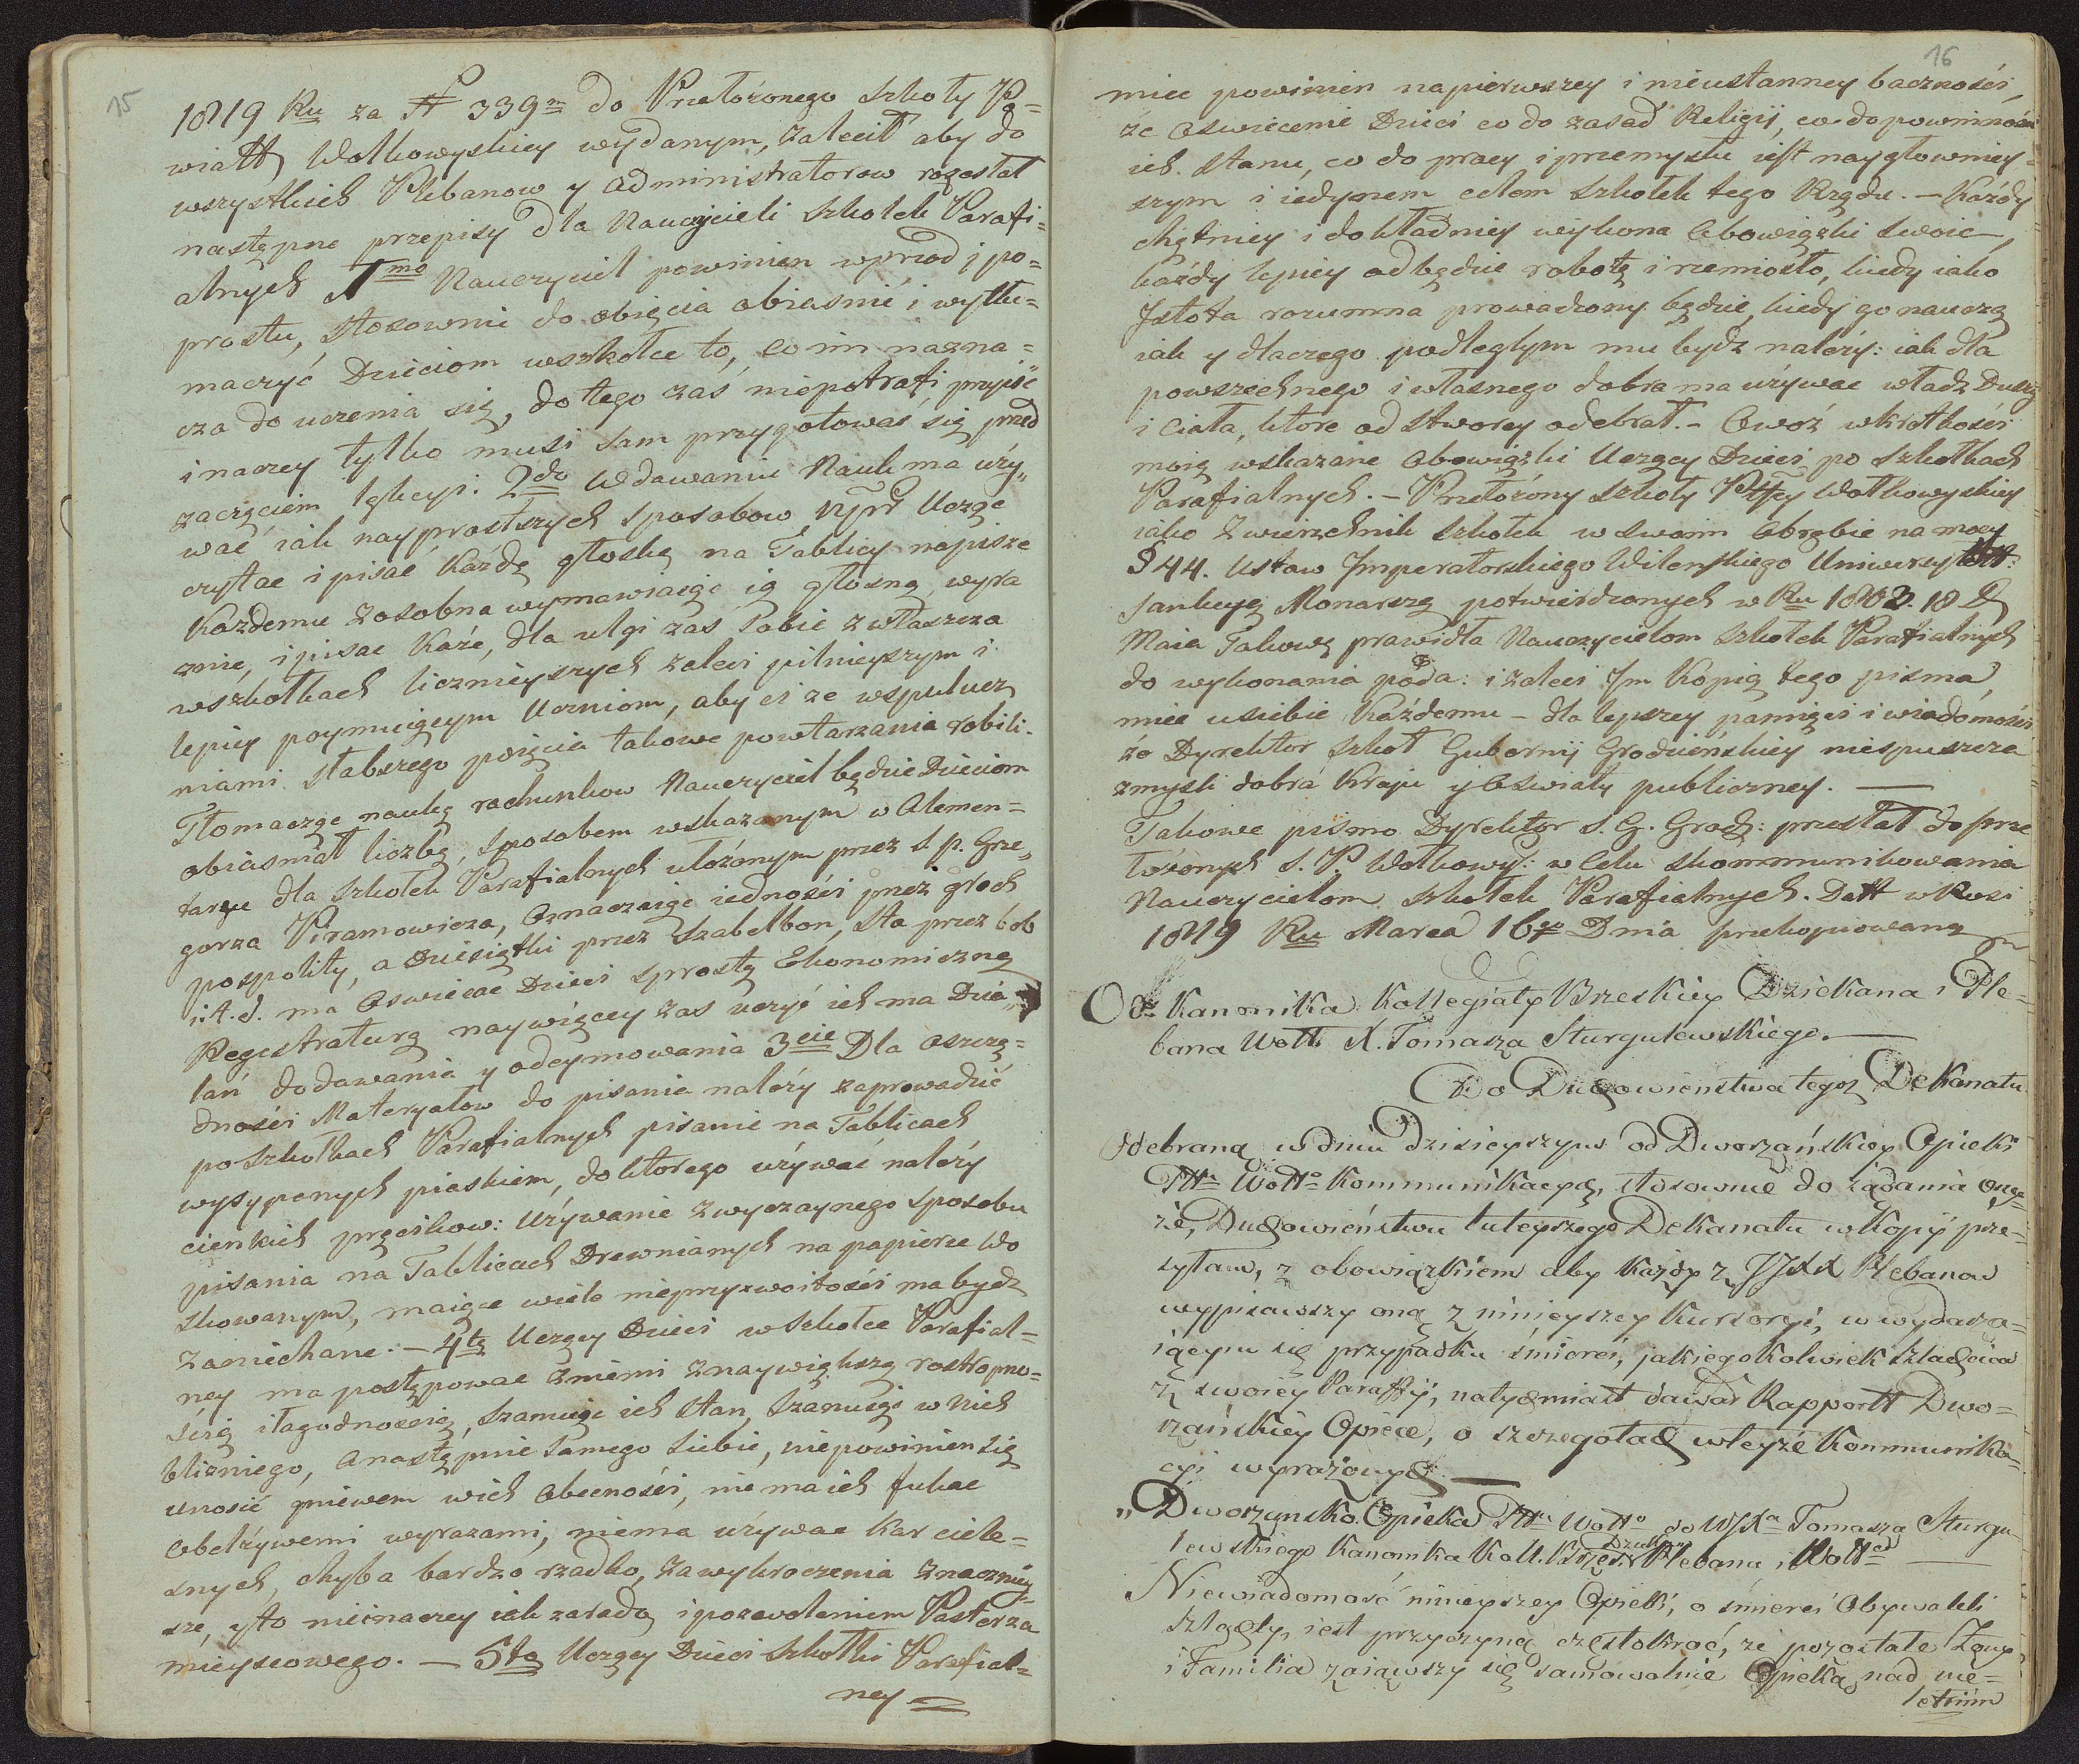 15
1819 Ru za N 339m do Przełożonego Szkoły Po=
wiatt Wołkowyskiey wydanym, zalecił aby do
wszystkich Plebanow y Administratorow rozesłał
następne przepisy dla Nauczycieli Szkołek Parafi=
alnych 1mo Nauczyciel powinien wprzod i po=
prostu, stosownie do obięcia obiasnić i wytłu=
maczyć Dzieciom w szkołce to, co im nazna=
cza do uczenia się, do tego zaś niepotrafi przyiść
inaczey tylko musi sam przygotować się przed
zaczęciem lekcyi. 2do W dawaniu Nauk ma uży„
wać iak nayprostszych sposobow, Uczęc
czytac i pisać Każdę głoskę na Tablicy napisze
Kożdemu zosobna wymawiaiąc ią głosną wyra
znie, i pisac Każe, dla ulgi zas sobie zwłaszcza
wszkołkach licznieyszych zaleci pilnieyszym i
lepiey poymuiącym Uczniom, aby ci ze wspułucz
niami słabszego poięcia takowe powtarzania robili.
Tłomacząc naukę rachunkow Nauczyciel będzie Dzieciom
obiasniał liczbę, sposobem wskazanym w Elemen=
tarzu dla Szkołek Parafialnych ułożonym przez s. p. Grze„
gorza Piramowicza, Oznaczaiąc iedności przez groch
pospolity, a Dziesiątki przez Szabelbon, Sta przez bob
i.t.d. ma Oswiecac Dzieci sprostą Ekonomiczną
Regestraturą naywięcey zas uczyć ich ma Dzia„
łań dodawania y odeymowania 3cie Dla oszczę=
dności Materyałow do pisania należy zaprowadzić
po szkołkach Parafialnych pisanie na Tablicach
wysypanych piaskiem, do ktorego używać należy
cienkich pręcikow: Używanie zwyczaynego sposobu
pisania na Tablicach Drewnianych na papierze Wo
skowanym, maiące wiele nieprzyzwoitości ma bydz
Zaniechane. – 4te Uczący Dzieci w Szkołce Parafial=
ney ma postępowac zniemi znaywiększą rostropno=
ścią i łagodnoscią, szanuiąc ich stan, szanuiąc w nich
blizniego, a następnie samego siebie, niepowinien się
unosić gniewem w ich obecności, nie ma ich fukac
obelżywemi wyrazami, niema używac Kar ciele=
snych, chyba bardzo rzadko, za wykroczenia znacznieÿ=
sze, y to nieinaczey iak za radą i pozwoleniem Pasterza
mieyscowego. – 5to Uczący Dzieci Szkołki Parafial=
ney
16
miec powinien na pierwszey i nieustanney baczności,
że Oswiecenie Dzieci co do zasad Religii, co do powinności
ich stanu, co do pracy i przemysłu iest naygłowniey=
szym i iedynem celem szkołek tego Rzędu. – Każdy
chętniey i dokładniey wykona Obowiązki swoie,
każdy lepiey odbędzie robotę i rzemiosło, kiedy iako
Istota rozumna prowadzony będzie, kiedy go nauczą
iak y dlaczego podległym mu bydź należy: iak dla
powszechnego i własnego dobra ma używac władz Duszy
i Ciała, ktore od stworcy odebrał. – Owoż wkrotkości
moię wskazane Obowiązki Uczący Dzieci po Szkołkach
Parafialnych. – Przełożony Szkoły Pttey Wołkowyskiey
iako Zwierzchnik szkołek w swoim Obrębie na mocy
§ 44. Ustaw Imperatorskiego Wileńskiego Uniwersytett:
Sankcyą Monarszą potwierdzonych w Ru 1803. 18 D
Maia Takowę prawidła Nauczycielom szkołek Parafialnych
do wykonania poda: i zaleci Im Kopią tego pisma,
miec u siebie Każdemu – dla lepszey pamięci i wiadomości
że Dyrektor szkoł Gubernij Grodzieńskiey niespuszcza
zmysli dobra Kraju y Oswiaty publiczney. —
Takowe pismo Dyrektor S. G. Grodz: przesłał do prze
łożonych S. P. Wołkowys: w Celu skommunikowania
Nauczycielom szkołek Parafialnych. Datt w Rosi
1819 Ru Marca 16go Dnia przekopiowane
Od Kanonika Kollegiaty Brzeskiey Dziekana i Ple=
bana Wołk X. Tomasza Sturgulewskiego. —
Do Duchowienstwa tegoż Dekanatu
Odebraną w dniu dzisieyszym od Dworzańskiey Opieki
Pttu Wołko Kommunikacyą, stosownie do żądania oney
że, Duchowieństwu tuteyszego Dekanatu w kopij prze=
syłam, z obowiązkiem aby każdy z JJXX Plebanow
wypisawszy oną z ninieyszey kursoryi, w wydarza=
iącym się przypadku śmierci, jakiegokolwiek szlachcica
z swoiey Paraffij, natychmiast dawał Rapportt Dwo=
rzańskiey Opiece, o szczegołach wteyże Kommunika=
cyi wyrażonych. —
„Dworzanska Opieka Pttu Wołko do WJXa Tomasza Sturgu=
lewskiego Kanonika Koll. Brzes. Dziekana Plebana i Wołko —
Niewiadomość ninieyszey Opieki, o śmierci Obywateli
szlachty, iest przyczyną częstokroć, że pozostałe Żony
i Familia zaiąwszy się samowolnie Opieką nad nie=
letnim